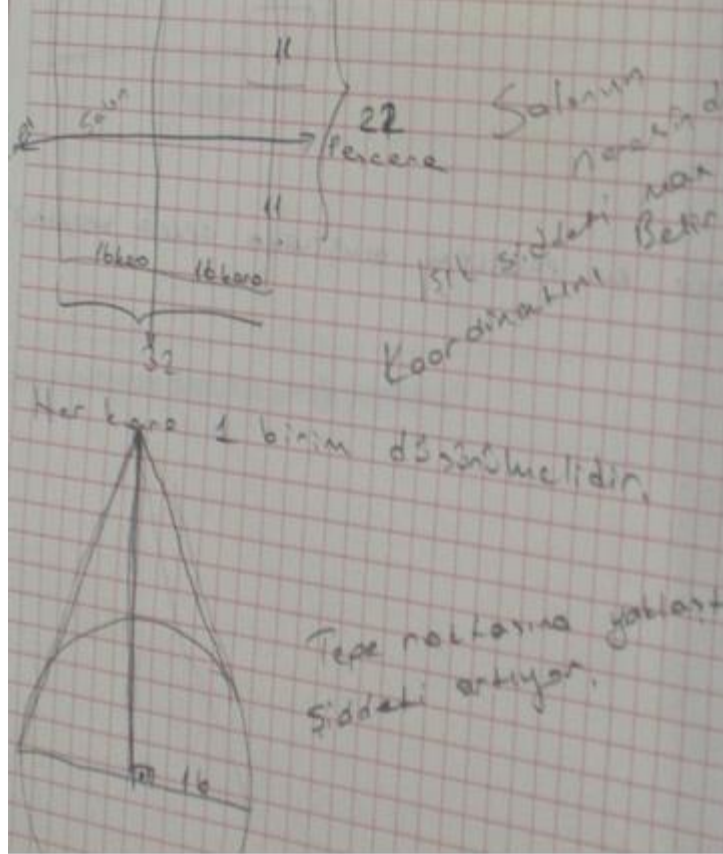 11
Salon
22
Pencere
11
16kare 16kare
32
Salonun
Işık şiddeti max
Koordinatını
Her kare 1 birim düşünülmelidir.
Tepe noktasına
şiddeti artıyor.
16